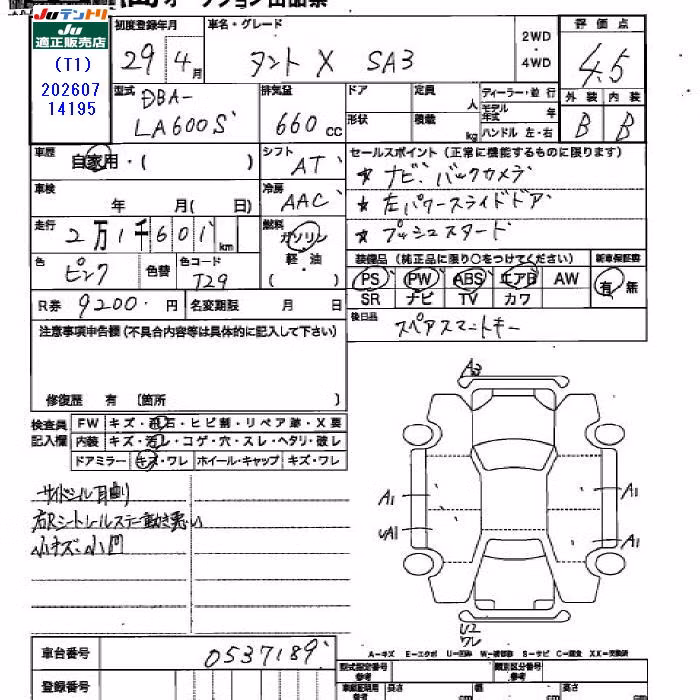 Juテントリ
Ju
適正販売店
(T1)
202607
14195
オークション出品票
初度登録年月
29年 4月
車名・グレード
タント X SA3
2WD
・
4WD
評価点
4.5
型式
DBA-
LA600S
排気量
660 cc
ドア
形状
定員 人
積載 kg
ディーラー・並行
モデル年式 年
ハンドル 左・右
外装 内装
B B
車歴
自家用・( )
シフト
AT
セールスポイント (正常に機能するものに限ります)
★ ナビ、バックカメラ
★ 左パワースライドドア
★ プッシュスタート
車検
年 月( 日)
冷房
AAC
走行
2万1千601 km
燃料
ガソリン
軽・油
( )
色
ピンク
色替
色コード
T29
装備品 (純正品に限り○をつけてください)
PS PW ABS エアB AW
SR ナビ TV カワ
新車保証書
有 無
R券 9200 円
名変期限 月 日
後日品
スペアスマートキー
注意事項申告欄 (不具合内容等は具体的に記入して下さい)
修復歴 有 〔箇所 〕
検査員
記入欄
FW キズ・飛石・ヒビ割・リペア跡・X要
内装 キズ・汚レ・コゲ・穴・スレ・ヘタリ・破レ
ドアミラー キズ・ワレ ホイール・キャップ キズ・ワレ
サイドシル目曲り
右Rシートレールステー動き悪い
小キズ、小凹
A3
A1
UA1
A1
A1
U2
ワレ
A-キズ E-エクボ U-凹み W-補修跡 S-サビ C-腐食 XX-交換済
車台番号
0537189
登録番号
型式指定番号
参考
類別区分番号
参考
車庫証明用
参考
長さ cm
幅 cm
高さ cm